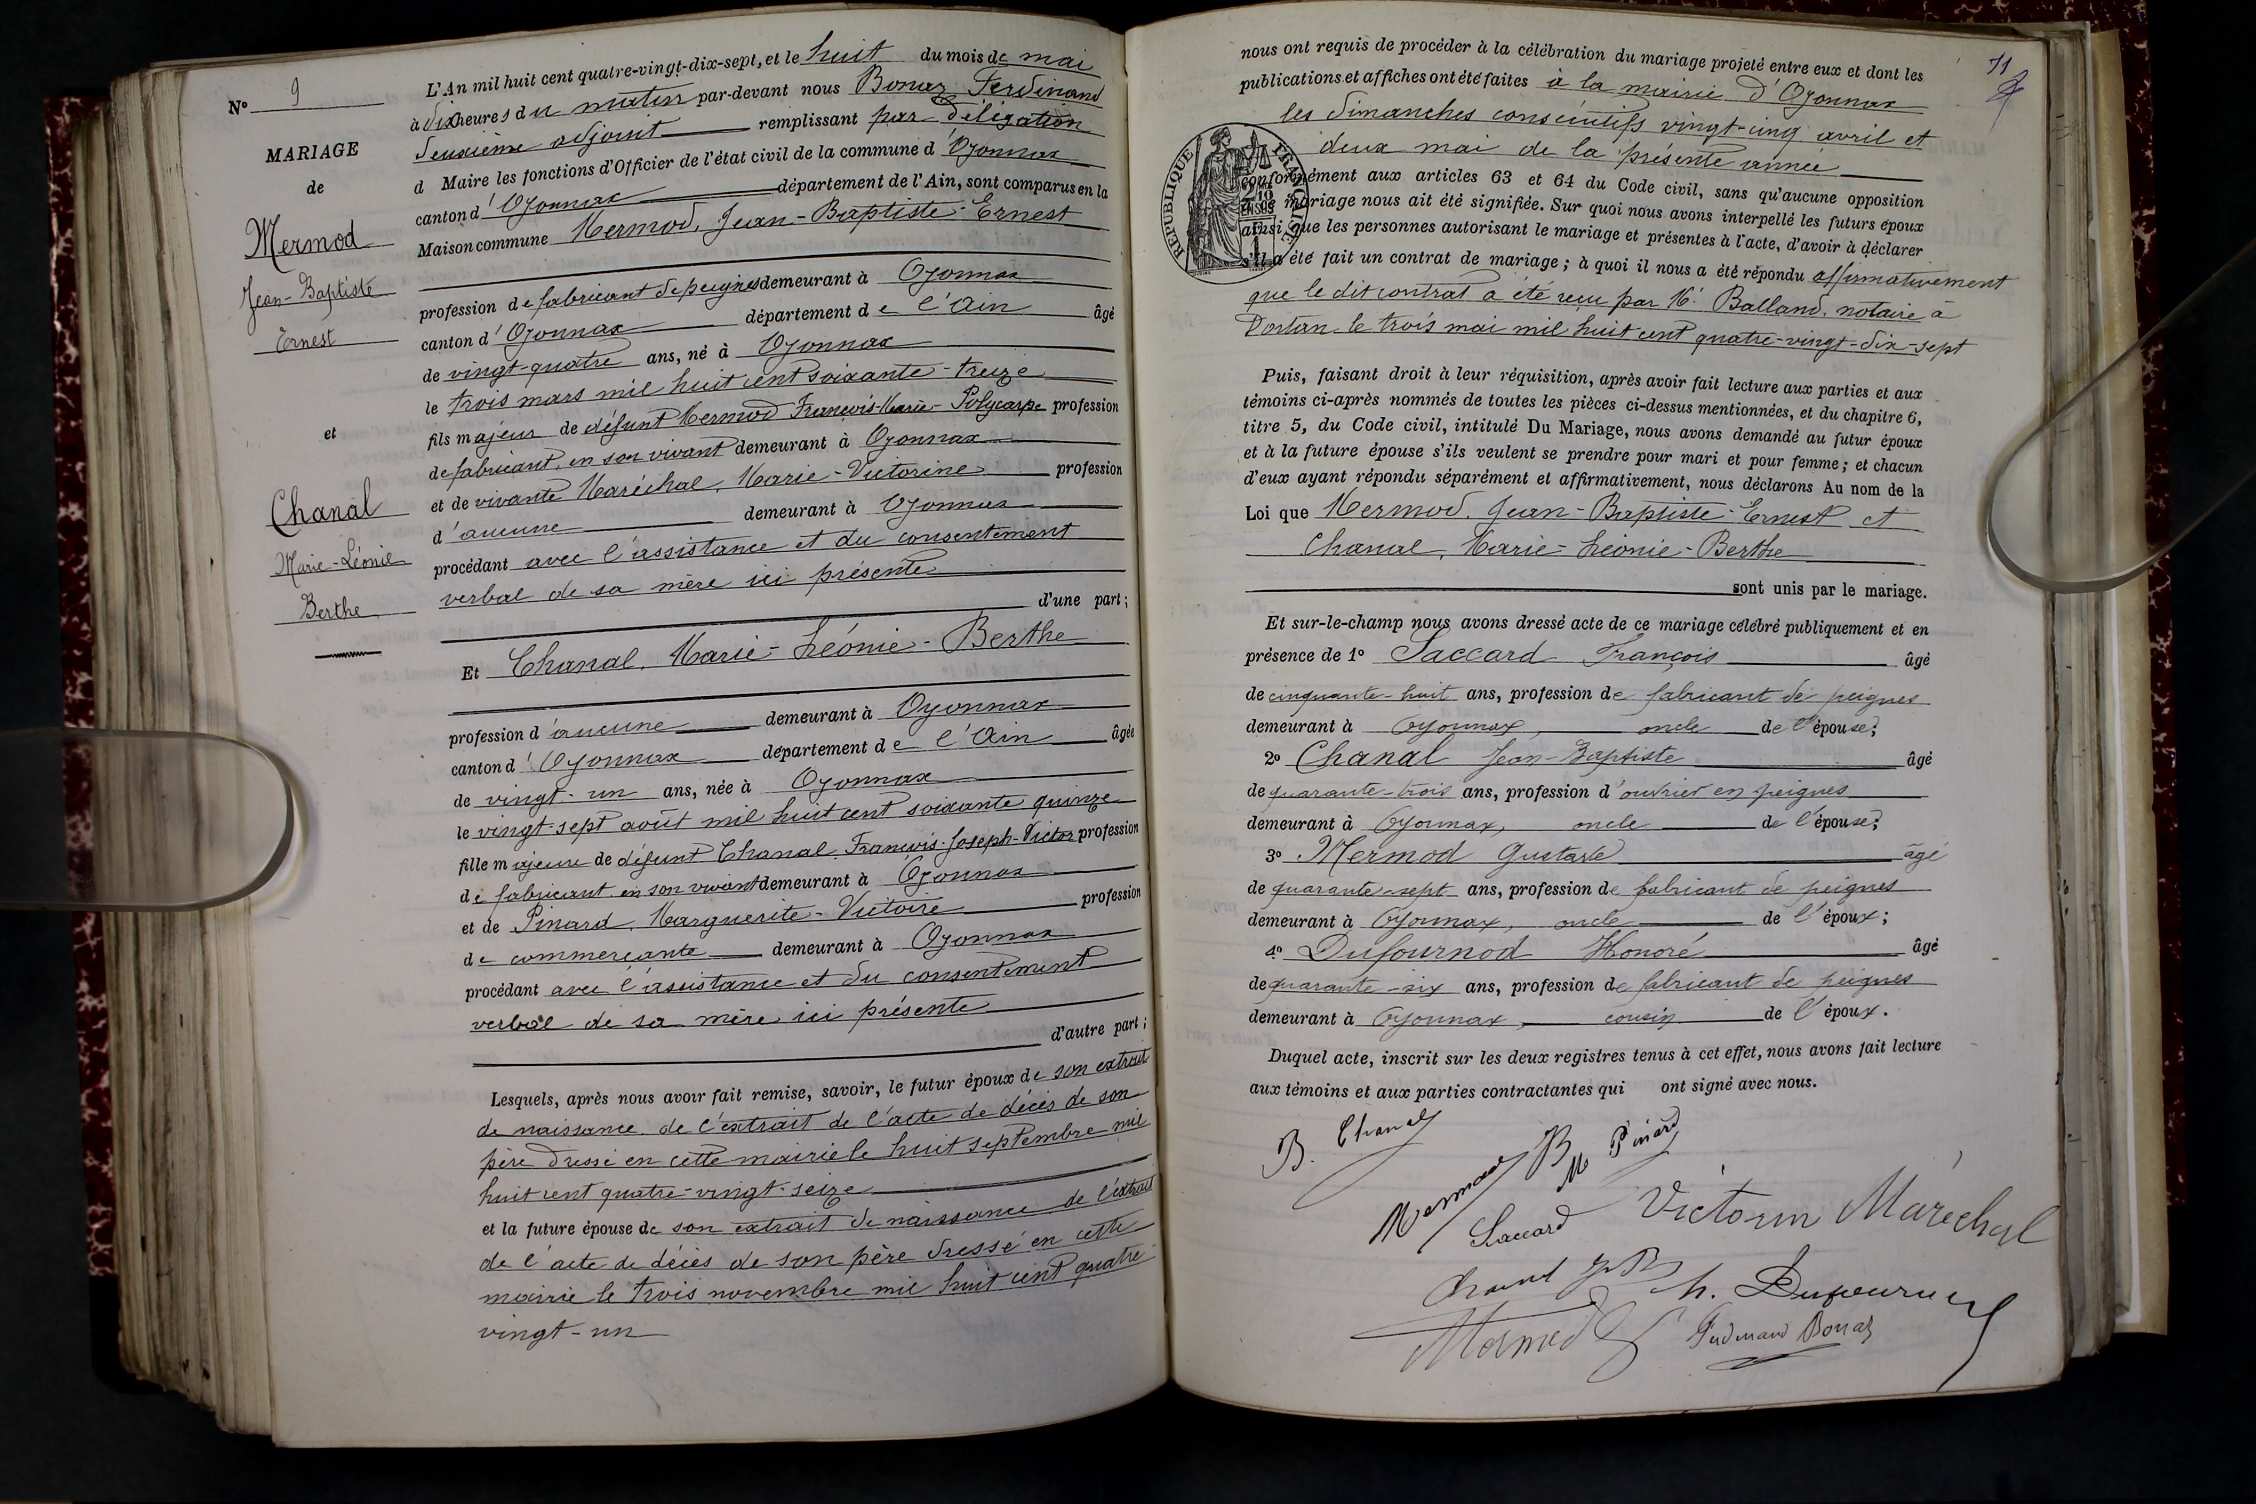 N° 9
MARIAGE
de
Mermod
Jean-Baptiste
Ernest
et
Chanal
Marie-Léonie
Berthe
L'An mil huit cent quatre-vingt-dix-sept, et le huit du mois de mai
à dix heures du matin par-devant nous Bonaz Ferdinand
deuxième adjoint remplissant par délégation
d Maire les fonctions d'Officier de l'état civil de la commune d'Oyonnax
canton d'Oyonnax département de l'Ain, sont comparus en la
Maison commune Mermod, Jean-Baptiste-Ernest
profession de fabricant de peignes demeurant à Oyonnax
canton d'Oyonnax département de l'Ain âgé
de vingt-quatre ans, né à Oyonnax
le trois mars mil huit cent soixante-treize
fils majeur de défunt Mermod François-Marie-Polycarpe profession
de fabricant, en son vivant demeurant à Oyonnax
et de vivante Maréchal, Marie-Victorine profession
d'aucune demeurant à Oyonnax
procédant avec l'assistance et du consentement
verbal de sa mère ici présente
d'une part;
Et Chanal, Marie-Léonie-Berthe
profession d'aucune demeurant à Oyonnax
canton d'Oyonnax département de l'Ain âgée
de vingt-un ans, née à Oyonnax
le vingt-sept août mil huit cent soixante quinze
fille majeure de défunt Chanal, François-Joseph-Victor profession
de fabricant en son vivant demeurant à Oyonnax
et de Pinard, Marguerite-Victoire profession
de commerçante demeurant à Oyonnax
procédant avec l'assistance et du consentement
verbal de sa mère ici présente
d'autre part;
Lesquels, après nous avoir fait remise, savoir, le futur époux de son extrait
de naissance de l'extrait de l'acte de décès de son
père dressé en cette mairie le huit septembre mil
huit cent quatre-vingt-seize
et la future épouse de son extrait de naissance de l'extrait
de l'acte de décès de son père dressé en cette
mairie le trois novembre mil huit cent quatre
vingt-un
71
nous ont requis de procéder à la célébration du mariage projeté entre eux et dont les
publications et affiches ont été faites à la mairie d'Oyonnax
les dimanches consécutifs vingt-cinq avril et
deux mai de la présente année
conformément aux articles 63 et 64 du Code civil, sans qu'aucune opposition
à ce mariage nous ait été signifiée. Sur quoi nous avons interpellé les futurs époux
ainsi que les personnes autorisant le mariage et présentes à l'acte, d'avoir à déclarer
s'il a été fait un contrat de mariage; à quoi il nous a été répondu affirmativement
que le dit contrat a été reçu par Me Balland, notaire à
Dortan le trois mai mil huit cent quatre-vingt-dix-sept
RÉPUBLIQUE FRANÇAISE
Puis, faisant droit à leur réquisition, après avoir fait lecture aux parties et aux
témoins ci-après nommés de toutes les pièces ci-dessus mentionnées, et du chapitre 6,
titre 5, du Code civil, intitulé Du Mariage, nous avons demandé au futur époux
et à la future épouse s'ils veulent se prendre pour mari et pour femme; et chacun
d'eux ayant répondu séparément et affirmativement, nous déclarons Au nom de la
Loi que Mermod, Jean-Baptiste-Ernest et
Chanal, Marie-Léonie-Berthe
sont unis par le mariage.
Et sur-le-champ nous avons dressé acte de ce mariage célébré publiquement et en
présence de 1° Saccard François âgé
de cinquante-huit ans, profession de fabricant de peignes
demeurant à Oyonnax, oncle de l'épouse;
2° Chanal Jean-Baptiste âgé
de quarante-trois ans, profession d'ouvrier en peignes
demeurant à Oyonnax, oncle de l'épouse;
3° Mermod Gustave âgé
de quarante-sept ans, profession de fabricant de peignes
demeurant à Oyonnax, oncle de l'époux;
4° Dufournod Honoré âgé
de quarante-six ans, profession de fabricant de peignes
demeurant à Oyonnax, cousin de l'époux.
Duquel acte, inscrit sur les deux registres tenus à cet effet, nous avons fait lecture
aux témoins et aux parties contractantes qui ont signé avec nous.
B. Chanal
Mermod B
M Pinard
Saccard Victorin Maréchal
Chanal JB h. Dufournod
Mermod G Ferdinand Bonaz